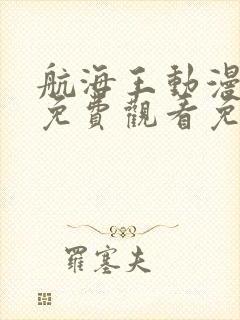 航海王動漫
免費觀看免
羅塞夫